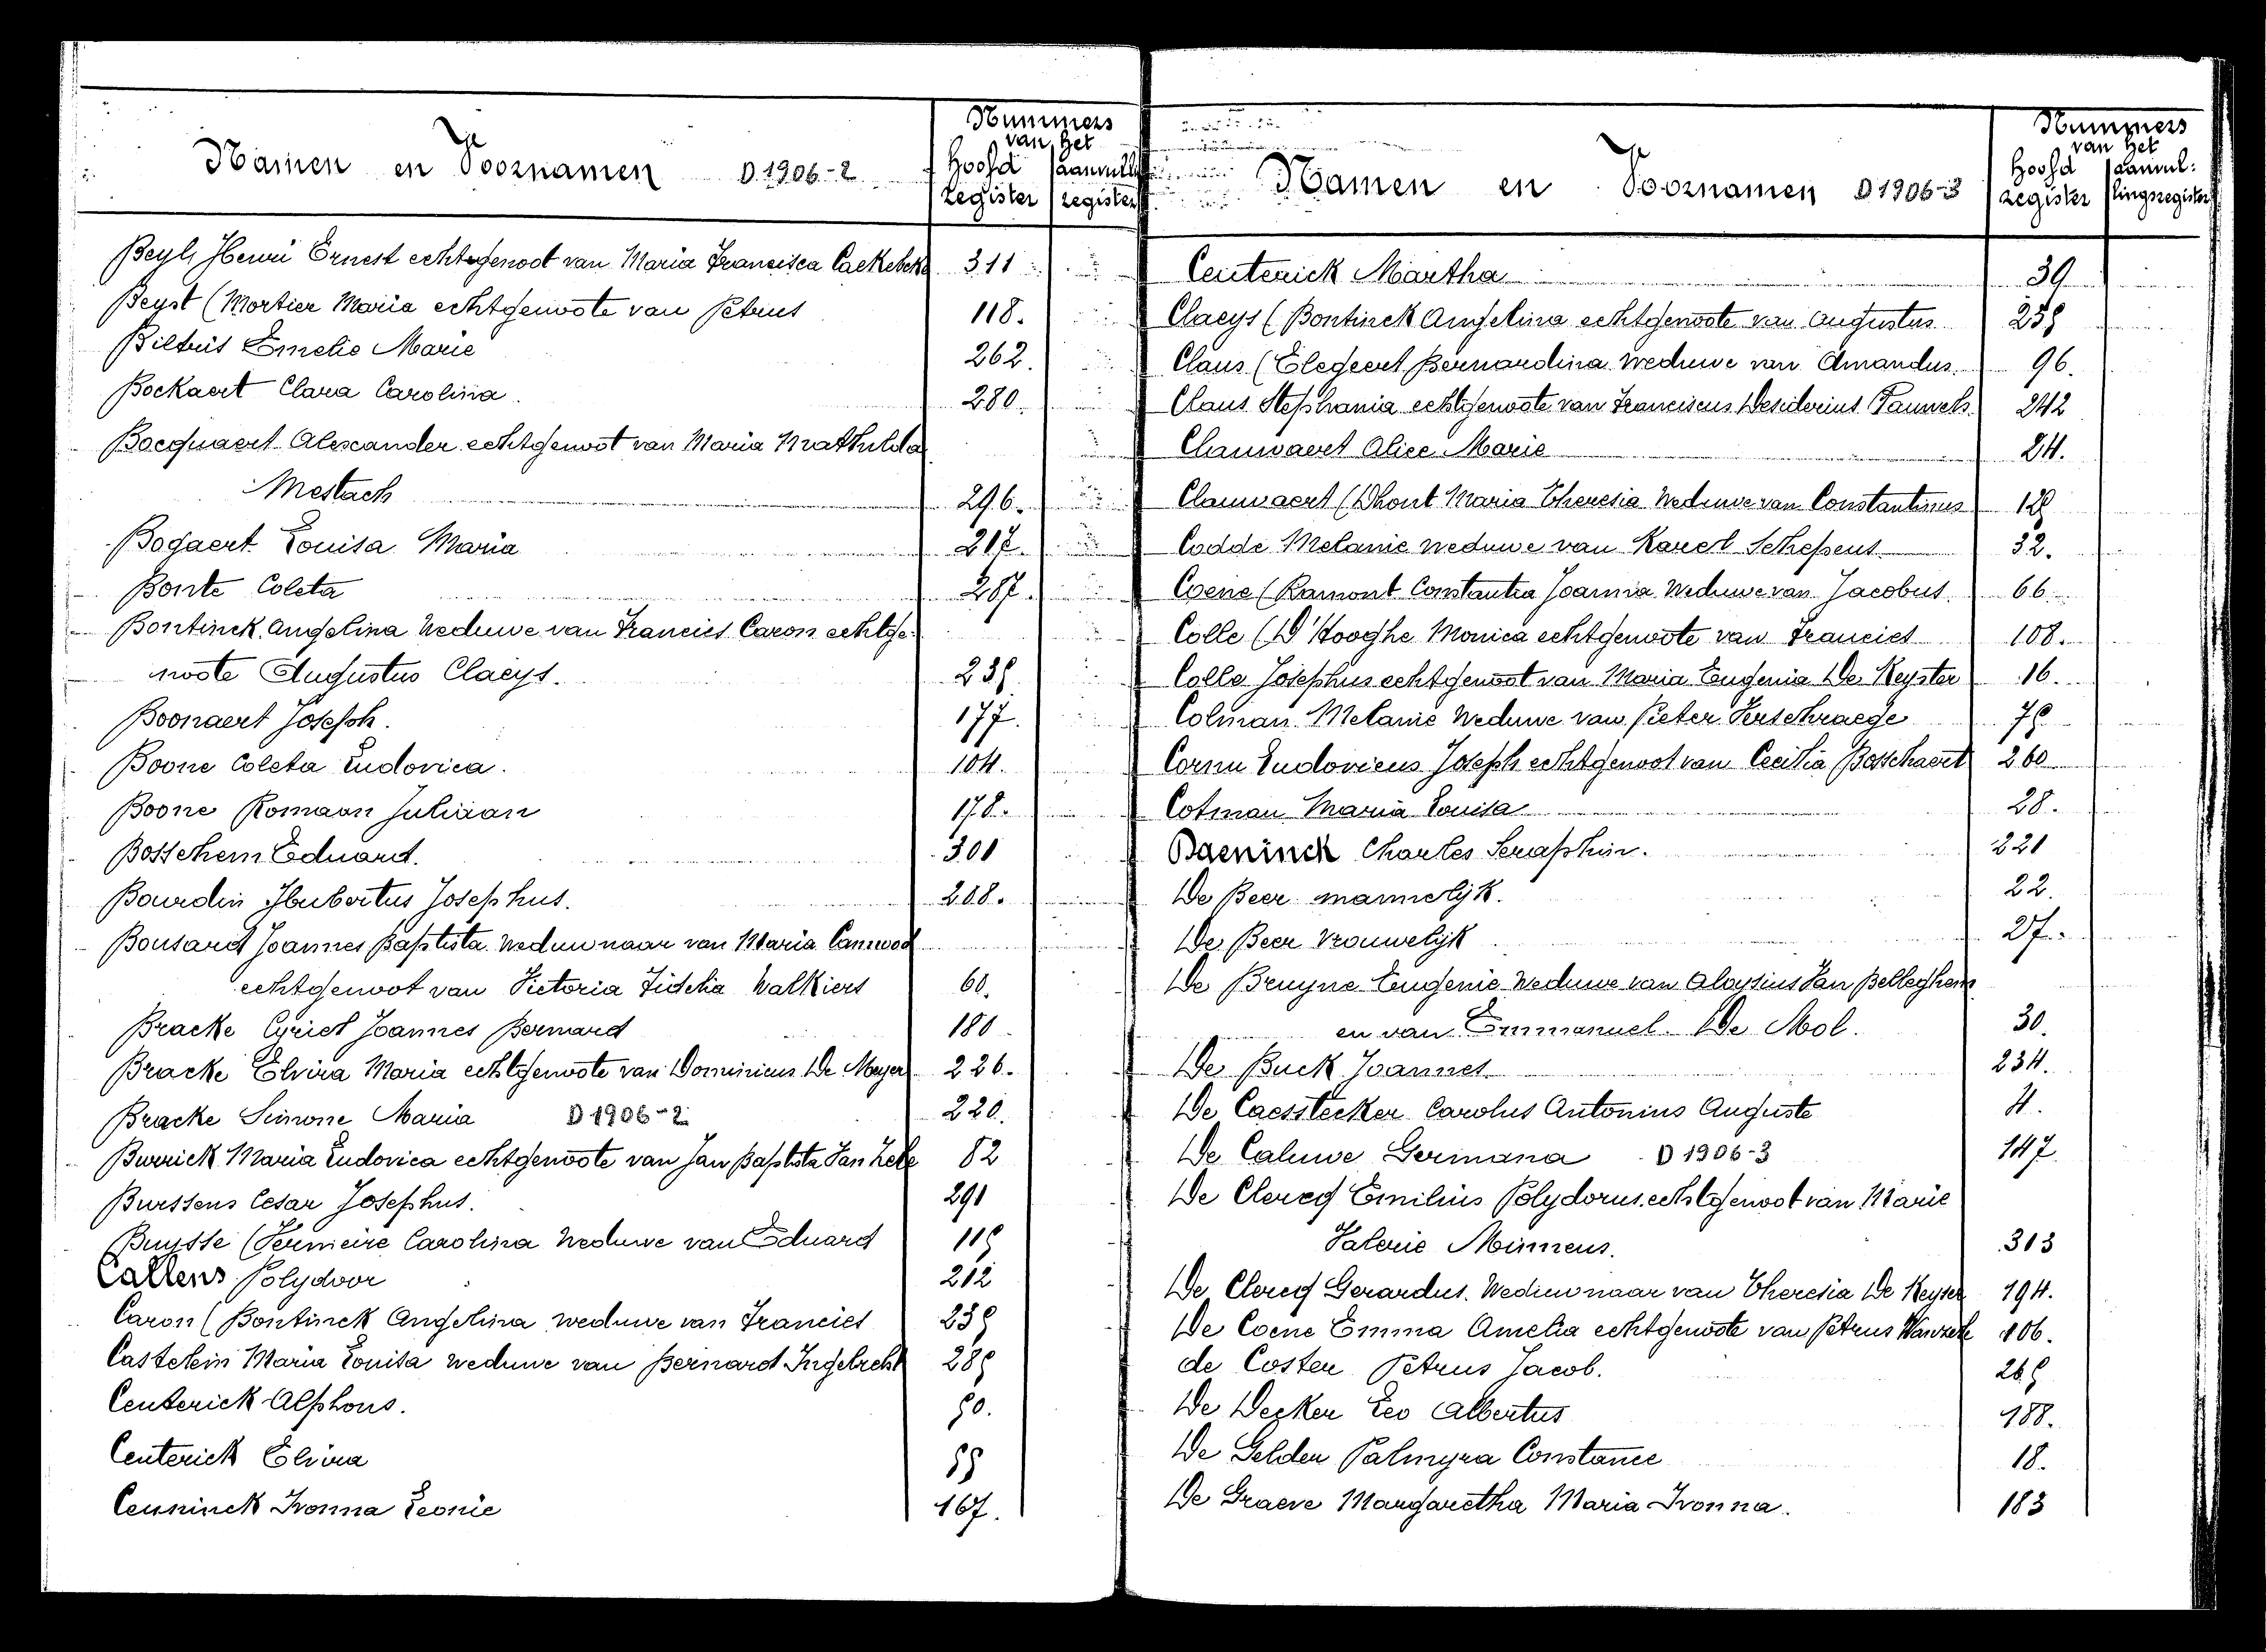 Namen en Voornamen D.1906-2
Nummers
van het
Hoofd aanvull
register register
Beyls Henri Ernest echtgenoot van Maria Francisca Cackebeke 311
Beyst (Mortier Maria echtgenoote van Petrus 118.
Biltris Emelie Marie 262.
Bockaert Clara Carolina. 280.
Bocquaert Alexander echtgenoot van Maria Mathilda
Mestach 296.
Bogaert Louisa Maria 217.
Bonte Coleta 287.
Bontinck Angelina Weduwe van Francies Caron echtge-
noote Augustus Claeys. 239
Boonaert Joseph. 177.
Boone Coleta Ludovica. 104.
Boone Romaan Juliaan 178.
Bosschem Eduard. 301
Bourdin Hubertus Josephus. 208.
Bousard Joannes Baptista Weduwnaar van Maria
echtgenoot van Victoria Fidelia Walkiers 60.
Bracke Cyriel Joannes Bernard 180
Bracke Elvira Maria echtgenoote van Dominicus De Meyer 226.
Bracke Simone Maria D 1906-2 220.
Burrick Maria Ludovica echtgenoote van Jan Baptista Van Hecke 82
Burssens Cesar Josephus. 291
Buysse (Vermeire Carolina Weduwe van Eduard 119
Callens Polydoor 212
Caron (Bontinck Angelina weduwe van Francies 239
Castelein Maria Louisa weduwe van Bernard Ingelrecht 289
Centerick Alphons. 90.
Centerick Elvina 99
Ceuninck Ivonna Leonie 167.
Namen en Voornamen D 1906-3
Nummers
van het
Hoofd aanvul:
register lingsregister
Centerick Martha 39
Claeys (Bontinck Angelina echtgenoote van Augustus 239
Claus (Elegeert Bernardina Weduwe van Amandus. 96.
Claus Stephania echtgenoote van Franciscus Desiderius Pauwels 242
Clauwaert Alice Marie 24.
Clauwaert (Dhont Maria Theresia Weduwe van Constantinus 129
Codde Melanie weduwe van Karel Schepens 32.
Coene (Ramont Constantia Joanna Weduwe van Jacobus 66.
Colle (D'Hooghe Monica echtgenoote van Francies 108.
Colle Josephus echtgenoot van Maria Eugenia De Keyster 16.
Colman Melanie Weduwe van Pieter Verschraege 79
Cornu Ludovicus Joseph echtgenoot van Cecilia Bosschaert 260
Cotman Maria Louisa 28.
Baeninck Charles Seraphin. 221
De Beer mannelijk. 22.
De Beer Vrouwelijk 27.
De Bruyne Eugenie Weduwe van Aloysius Van Belleghem
en van Emmanuel De Mol. 30.
De Buck Joannes 234.
De Caesstecker Carolus Antonius Auguste 4.
De Caluwe Germana D 1906-3 147
De Clercq Emilius Polydorus echtgenoot van Marie
Valerie Minnens. 313
De Clercq Gerardus. Weduwnaar van Theresia De Keyser 194.
De Coene Emma Amelia echtgenoote van Petrus Wanzele 106.
de Coster Petrus Jacob. 269
De Decker Leo Albertus 188.
De Gelder Palmyra Constance 18.
De Graeve Margaretha Maria Ivonna. 183